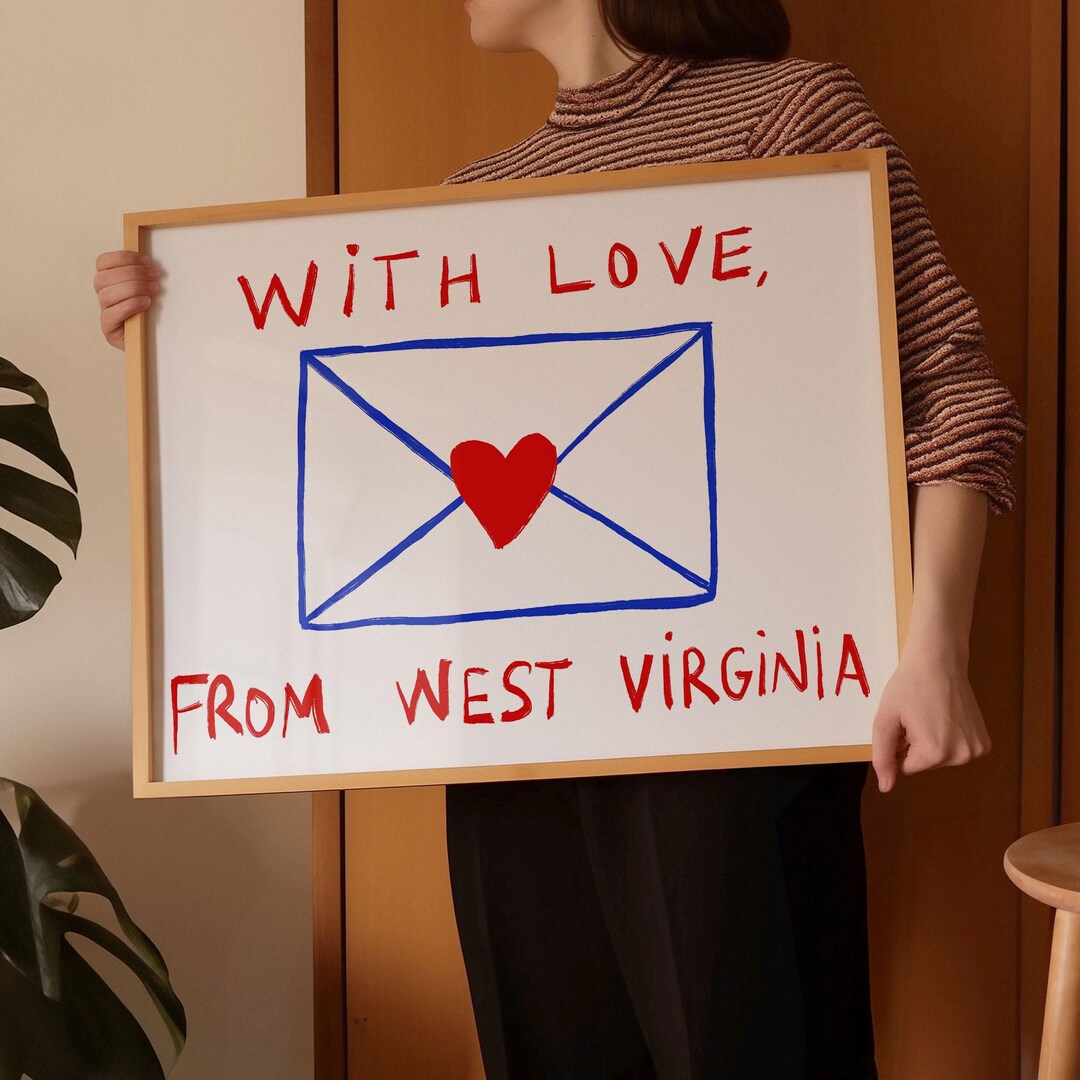 WiTH LOVE,
FROM WEST ViRGiNiA